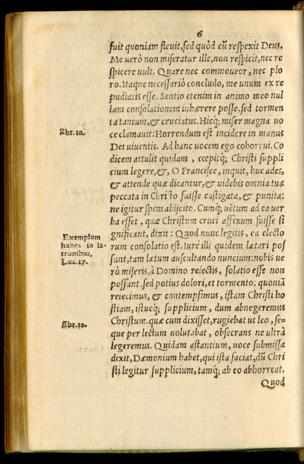 6
fuit quoniam flevit, sed quòd eũ respexit Deus.
Me verò non miseratur ille, non respicit, nec re
spicere vult. Quare nec commoveor, nec plo
ro. Itaque necessariò concludo, me unum ex re
pudiatis esse. Sentio etenim in animo meo nul
lam consolationem inhærere posse, sed tormen
ta tantum, & cruciatus. Hicq; miser magna vo
Ebr. 10.
ce clamavit: Horrendum est incidere in manus
Dei viventis. Ad hanc vocem ego cohorrui. Co
dicem attulit quidam, cœpitq; Christi suppli
cium legere, &, O Francisce, inquit, huc ades,
& attende quæ dicantur, & videbis omnia tua
peccata in Christo fuisse castigata, & punita:
ne igitur spem abjicito. Cumq; vẽtum ad ea ver
ba esset, quæ Christum cruci affixum fuisse si
gnificant, dixit: Quod nunc legitis, ea electo
Exemplum
habes in la-
tronibus,
Luc. 17.
rum consolatio est. Iurè illi quidem lætari pos
sunt, tam lætum auscultando nuncium: nobis ve
rò miseris, à Domino reiectis, solatio esse non
possunt, sed potius dolori, et tormento: quoniã
reiecimus, & contempsimus, istam Christi ho
stiam, istucq; supplicium, dum abnegeremus
Ebr. 10.
Christum. quæ cum dixisset, rugiebat ut leo, se-
que per lectum volutabat, obsecrans ne ultrà
legeremus. Quidam astantium, voce submissa
dixit, Dæmonium habet, qui ista faciat, dũ Chri
sti legitur supplicium, tamq; ab eo abhorreat.
Quod